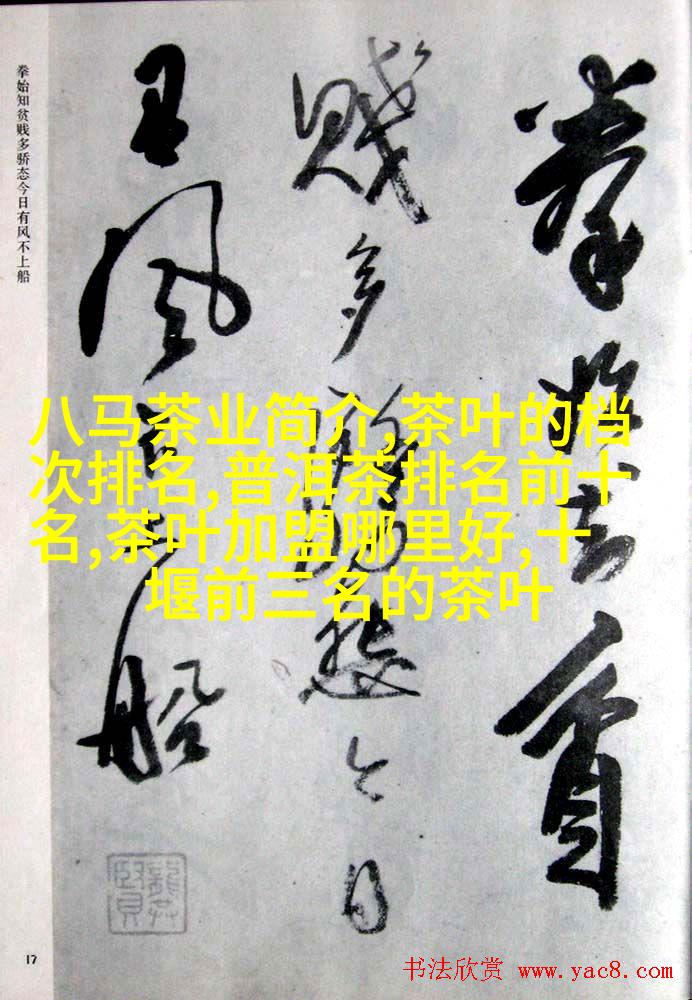 拳始知贫
贱多骄态今日
有风不上船
拳始知贫贱多骄态今日有风不上船
八马茶业简介,茶叶的档
次排名,普洱茶排名前十
名,茶叶加盟哪里好,十
堰前三名的茶叶
17
书法欣赏 www.yac8.com